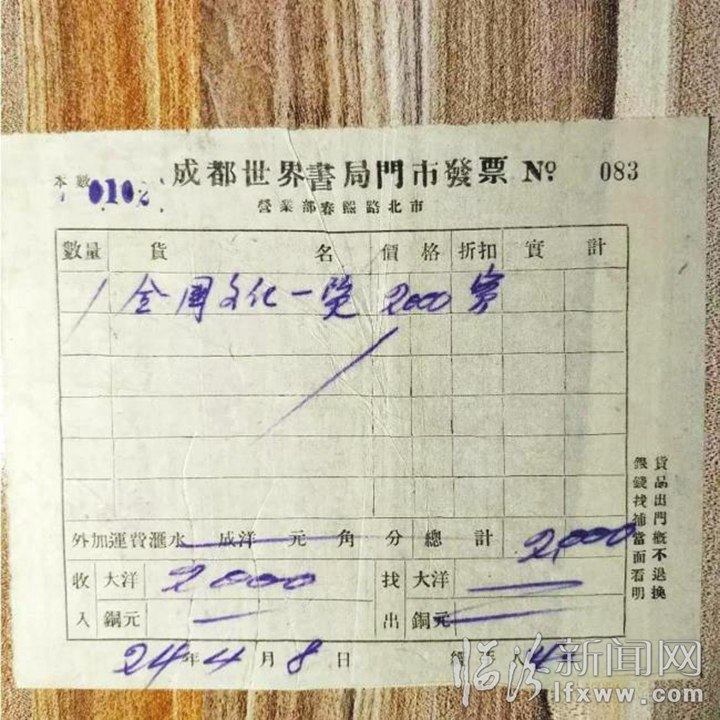 本數 0102
成都世界書局門市發票 № 083
營業部春熙路北市
數量 貨名 價格 折扣 實計
1 全國文化一覽 2000 實
外加運費滙水 成洋 元 角 分 總計 2,000
收入 大洋 2000 找出 大洋
銅元 銅元
24年4月8日 經手人
貨品出門概不退換
銀錢找補當面看明
临汾新闻网
www.lfxww.com